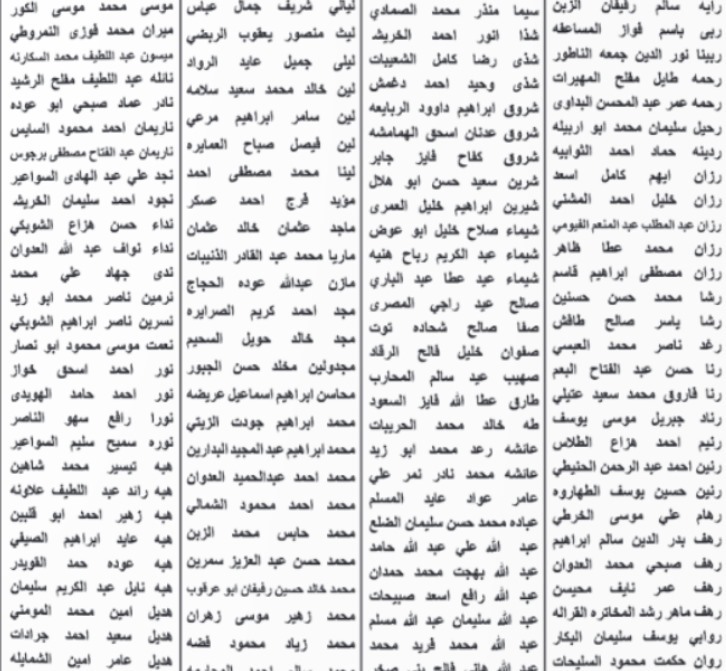 رايه سالم رفيفان الزبن
ربى باسم فواز المساعفه
ربينا نور الدين جمعه الناطور
رحمه طايل مفلح المهيرات
رحمه عمر عبد المحسن البداوى
رحيل سليمان محمد ابو اربيله
ردينه حماد احمد الثوابيه
رزان ايهم كامل اسعد
رزان خليل احمد المشني
رزان عبد المطلب عبد المنعم الفيومي
رزان محمد عطا ظاهر
رزان مصطفى ابراهيم قاسم
رشا محمد حسن حسنين
رشا ياسر صالح طافش
رغد ناصر محمد العبسي
رنا حسن عبد الفتاح البعم
رنا فاروق محمد سعيد عتيلي
رناد جبريل موسى يوسف
رنيم احمد هزاع الطلاس
رنين احمد عبد الرحمن الحنيطي
رنين حسين يوسف الطهاروه
رهام علي موسى الخرطي
رهف بدر الدين سالم ابراهيم
رهف صبحي محمد العدوان
رهف عمر نايف محيسن
رهف ماهر رشد المخاتره القراله
روابي يوسف سليمان البكار
روان حكمت سعود السليحات
سيما منذر محمد الصمادي
شذا انور احمد الخريشه
شذى رضا كامل الشعيبات
شذى وحيد احمد دغمش
شروق ابراهيم داوود الربايعه
شروق عدنان اسحق الهمامشه
شروق كفاح فايز جابر
شرين سعيد حسن ابو هلال
شيرين ابراهيم خليل العمرى
شيماء صلاح خليل ابو عوض
شيماء عبد الكريم رباح هنيه
شيماء عيد عطا عبد الباري
صالح عيد راجي المصرى
صفا صالح شحاده توت
صفوان خليل فالح الرقاد
صهيب عيد سالم المحارب
طارق عطا الله فايز السعود
طه خالد محمد الحريبات
عائشه رعد محمد ابو زيد
عائشه محمد نادر نمر علي
عامر عواد عايد المسلم
عباده محمد حسن سليمان الضلع
عبد الله علي عبد الله حامد
عبد الله بهجت محمد حمدان
عبد الله رافع اسعد صبيحات
عبد الله سليمان عبد الله مسلم
عبد الله محمد فريد محمد
عبد الله هاني فالح بني صخر
ليالي شريف جمال عباس
ليث منصور يعقوب الريضي
ليلى جميل عايد الرواد
لين خالد محمد سعيد سلامه
لين سامر ابراهيم مرعي
لين فيصل صباح العمايره
لينا محمد مصطفى احمد
مؤيد فرج احمد عسكر
ماجد عثمان خالد عثمان
ماريا محمد عبد القادر الذنيبات
مازن عبدالله عوده الحجاج
مجد احمد كريم الصرايره
مجد خالد حويل السحيم
مجدولين مخلد حسن الجبور
محاسن ابراهيم اسماعيل عريضه
محمد ابراهيم جودت الزيتي
محمد ابراهيم عبد المجيد البدارين
محمد احمد عبدالحميد العدوان
محمد احمد محمود الشمالي
محمد حابس محمد الزبن
محمد حسن عبد العزيز سمرين
محمد خالد حسين رفيفان ابو عرقوب
محمد زهير موسى زهران
محمد زياد محمود فضه
محمد سالم احمد
موسى محمد موسى الكور
ميران محمد فوزى النمروطي
ميسون عبد اللطيف محمد السكارنه
نائله عبد اللطيف مفلح الرشيد
نادر عماد صبحي ابو عوده
ناريمان احمد محمود السايس
ناريمان عبد الفتاح مصطفى برجوس
نجد علي عبد الهادى السواعير
نجود احمد سليمان الخريشه
نداء حسن هزاع الشوبكي
نداء نواف عبد الله العدوان
ندى جهاد علي محمد
نرمين ناصر محمد ابو زيد
نسرين ناصر ابراهيم الشوبكي
نعمت موسى محمود ابو نصار
نور احمد اسحق خواز
نور احمد حامد الهويدى
نورا رافع سهو الناصر
نوره سميح سليم السواعير
هبه تيسير محمد شاهين
هبه رائد عبد اللطيف علاونه
هبه زهير احمد ابو قلبين
هبه عايد ابراهيم الصيفي
هبه عوده حمد القويدر
هبه نايل عبد الكريم سليمان
هديل امين محمد المومني
هديل سعيد احمد جرادات
هديل عامر امين الشمايله